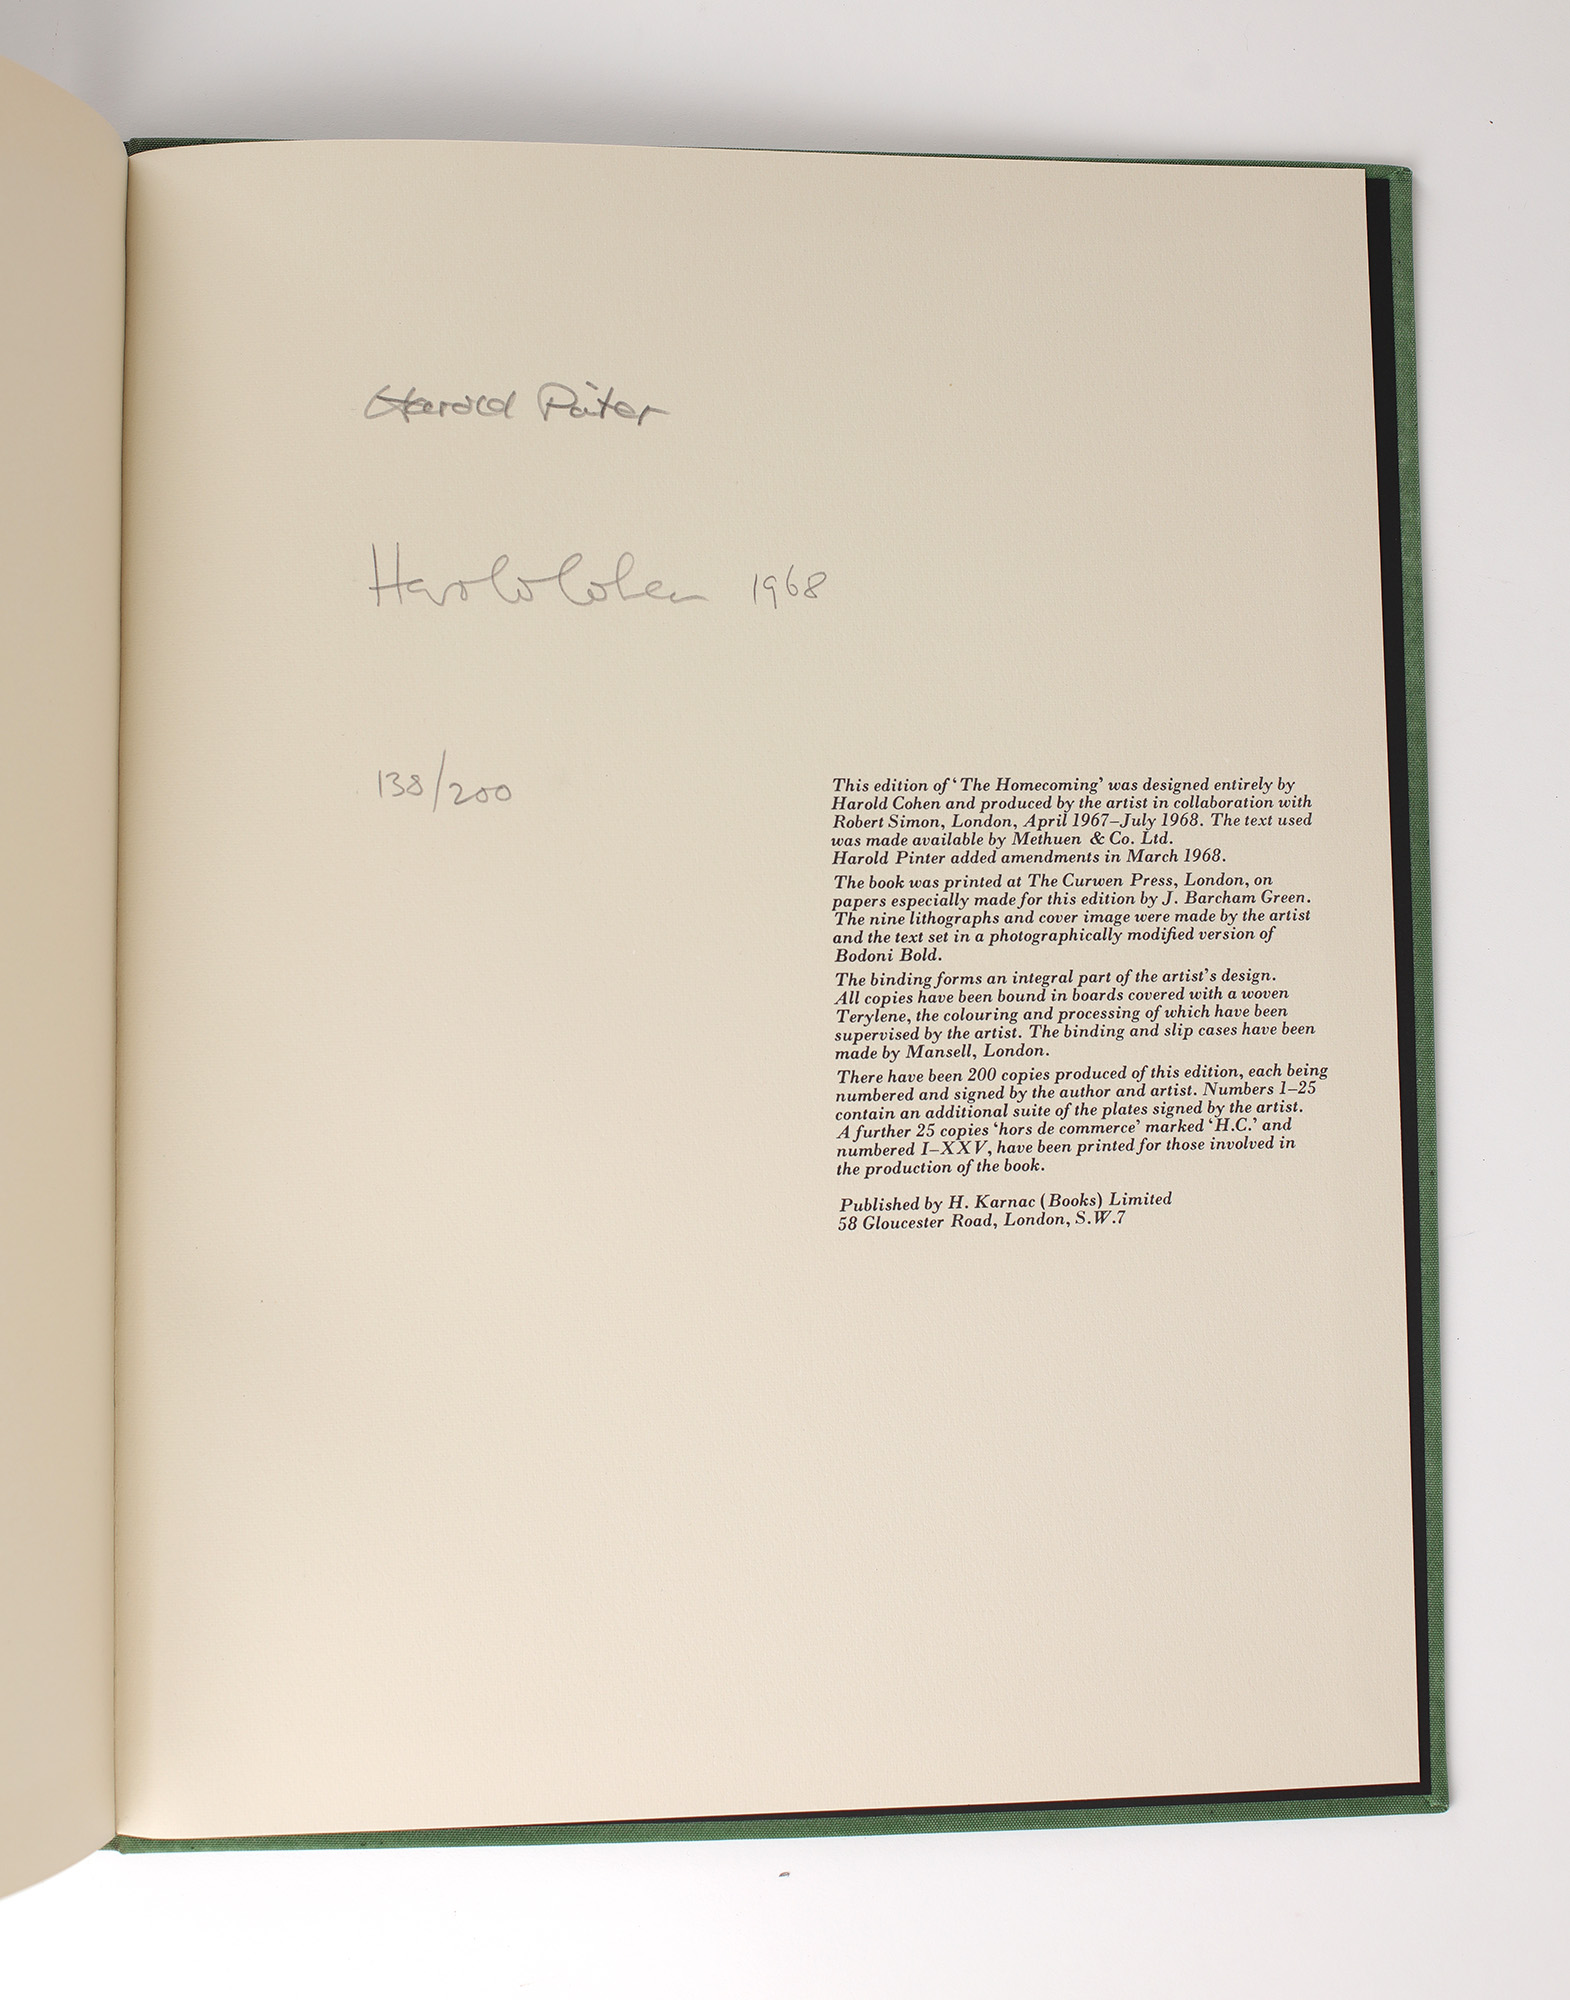 Harold Pinter
Harold Cohen 1968
138/200
This edition of ‘The Homecoming’ was designed entirely by
Harold Cohen and produced by the artist in collaboration with
Robert Simon, London, April 1967–July 1968. The text used
was made available by Methuen & Co. Ltd.
Harold Pinter added amendments in March 1968.
The book was printed at The Curwen Press, London, on
papers especially made for this edition by J. Barcham Green.
The nine lithographs and cover image were made by the artist
and the text set in a photographically modified version of
Bodoni Bold.
The binding forms an integral part of the artist’s design.
All copies have been bound in boards covered with a woven
Terylene, the colouring and processing of which have been
supervised by the artist. The binding and slip cases have been
made by Mansell, London.
There have been 200 copies produced of this edition, each being
numbered and signed by the author and artist. Numbers 1–25
contain an additional suite of the plates signed by the artist.
A further 25 copies ‘hors de commerce’ marked ‘H.C.’ and
numbered I–XXV, have been printed for those involved in
the production of the book.
Published by H. Karnac (Books) Limited
58 Gloucester Road, London, S.W.7